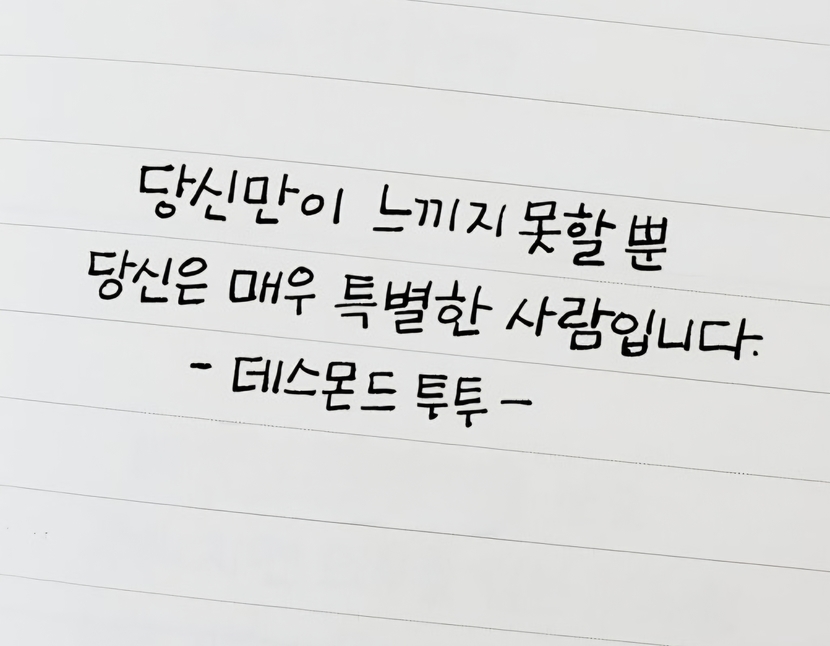 당신만이 느끼지 못할 뿐
당신은 매우 특별한 사람입니다.
- 데스몬드 투투 -